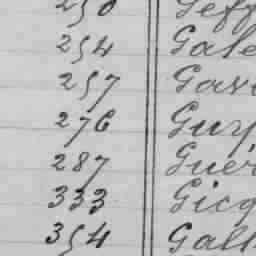 250 Geff
254 Gale
257 Gav
276 Guy
287 Guér
333 Gicq
354 Gall